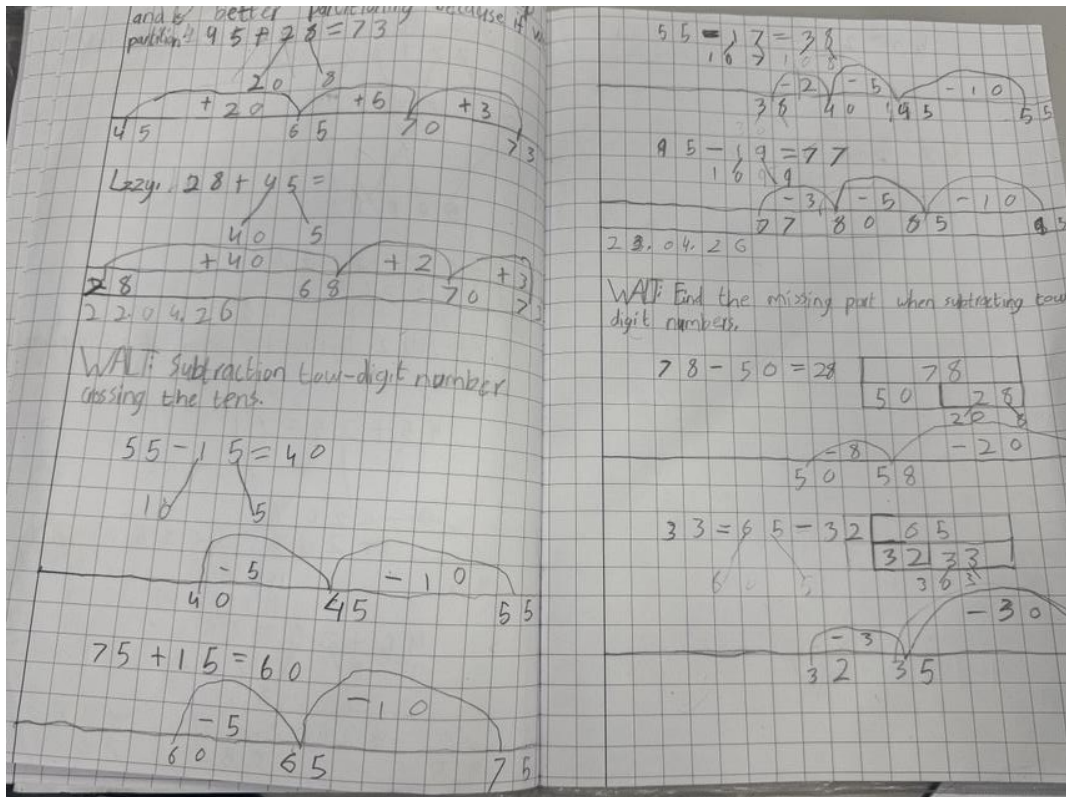 and is better partitioning because if
partition 45 + 28 = 73
20 8
+20 +5 +3
45 65 70 73
Izzy. 28 + 45 =
40 5
+40 +2 +3
28 68 70 7
22.04.26
WALT: Subtraction tow-digit number
crossing the tens.
55 - 15 = 40
10 5
-5 -10
40 45 55
75 + 15 = 60
-5 -10
60 65 75
55 - 17 = 38
10 7
-2 -5 -10
38 40 45 55
95 - 19 = 77
10 9
-3 -5 -10
77 80 85 95
23.04.26
WALT: Find the missing part when subtracting tow
digit numbers.
78 - 50 = 28 78
50 28
20 8
-8 -20
50 58
33 = 65 - 32 65
32 33
60 5 30 3
-3 -30
32 35